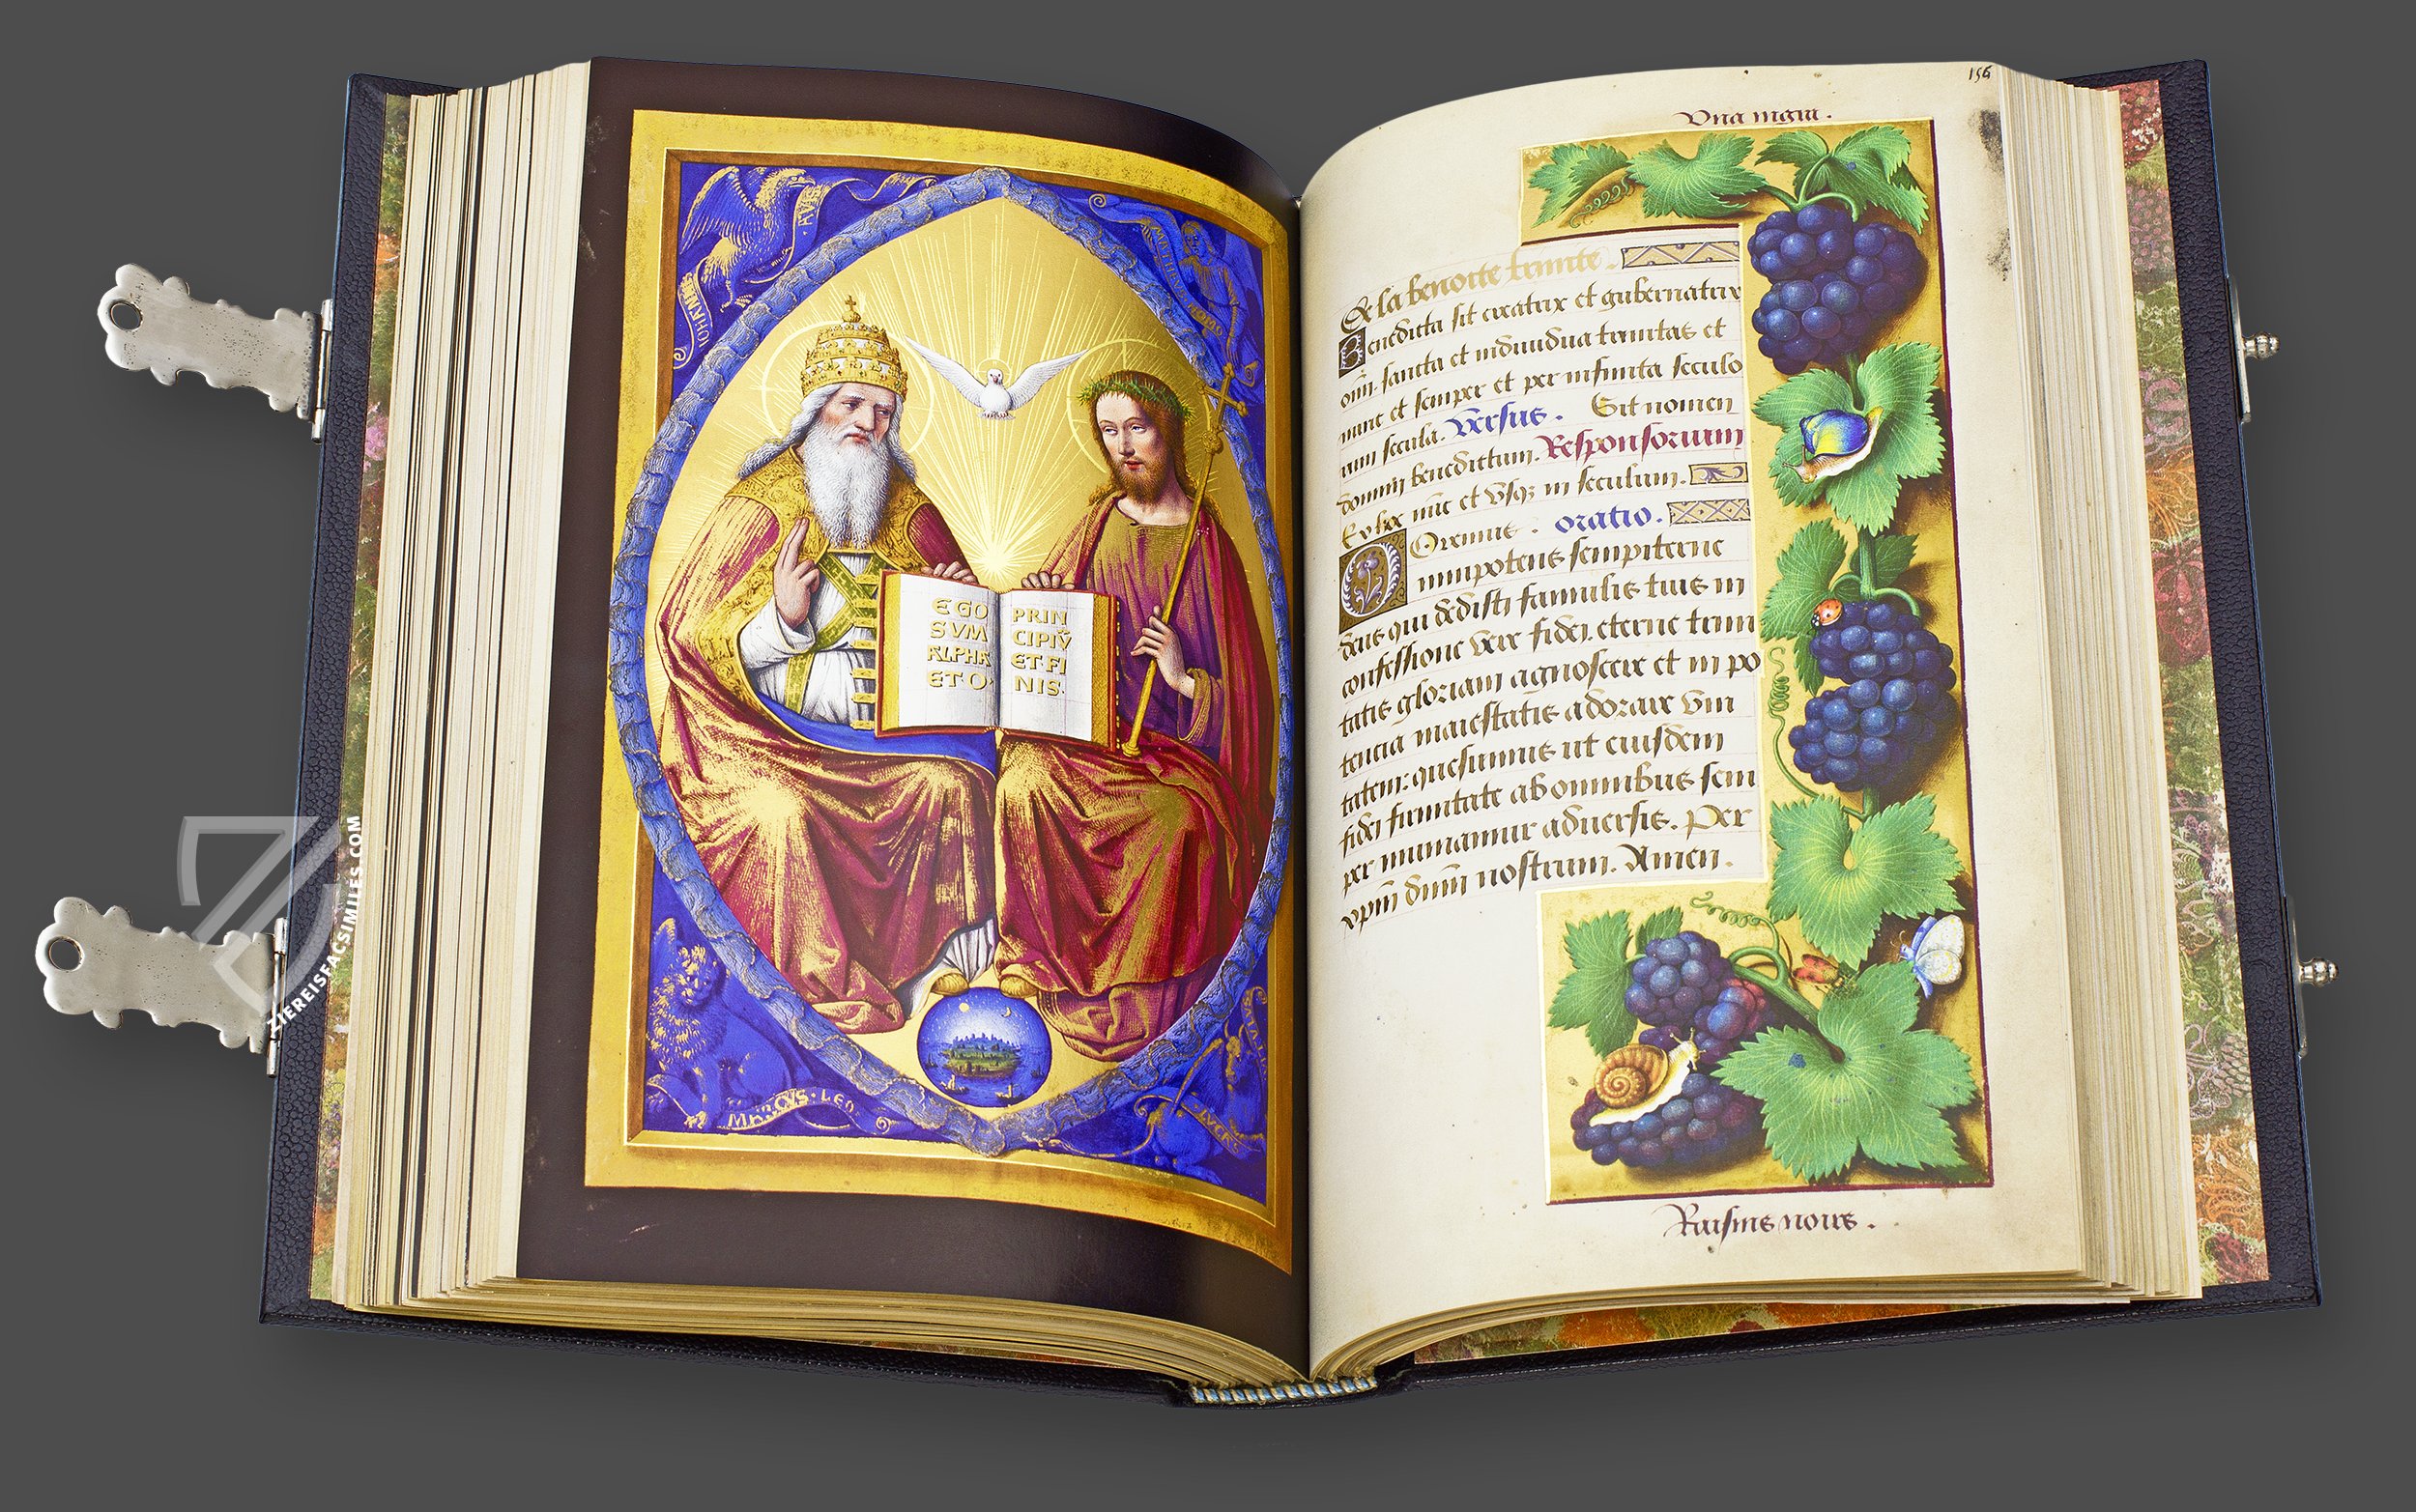 IOHANES
AVIS
MATTHEVS
HOMO
EGO
SVM
ALPHA
ET O·
PRIN
CIPIṼ
ET FI
NIS·
MARCVS·LEO
LVCAS
156
Vua nigra.
De la benoite trinite.
Benedicta sit creatrix et gubernatrix
oim̄. sancta et indiuidua trinitas et
nunc et semper et per infinita seculo
rum secula. Versus. Sit nomen
domini benedictum. Responsorium
Ex hoc nūc et vsqz in seculum.
Oremus. oratio.
Omnipotens sempiterne
deus qui dedisti famulis tuis in
confessione vere fidei, eterne trini
tatis gloriam agnoscere et in po
tencia maiestatis adorare vni
tatem: quesumus ut eiusdem
fidei firmitate ab omnibus sem
per muniamur aduersis. Per
xpm̄ dnm̄ nostrum. Amen.
Raisins noirs.
ZIEREISFACSIMILES.COM